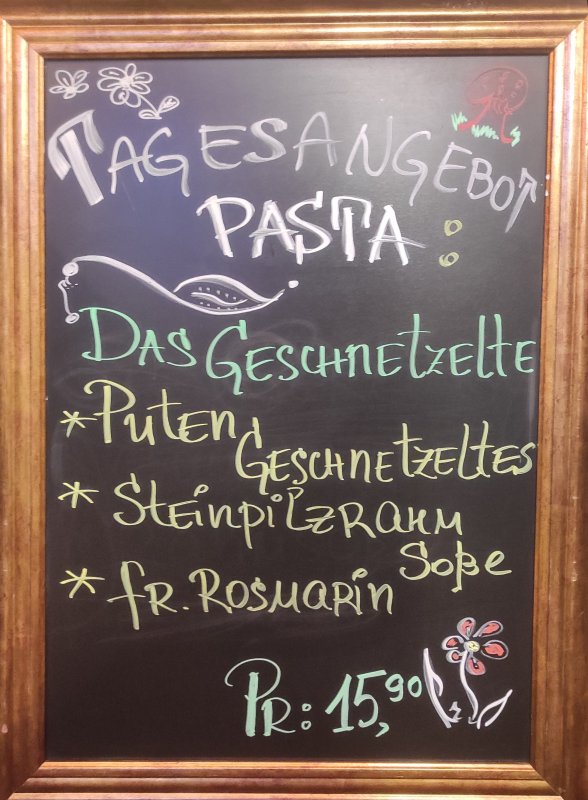 TAGESANGEBOT
PASTA:
DAS GESCHNETZELTE
* PUTEN GESCHNETZELTES
* STEINPILZRAHM
SOßE
* fR. ROSMARIN
PR: 15,90